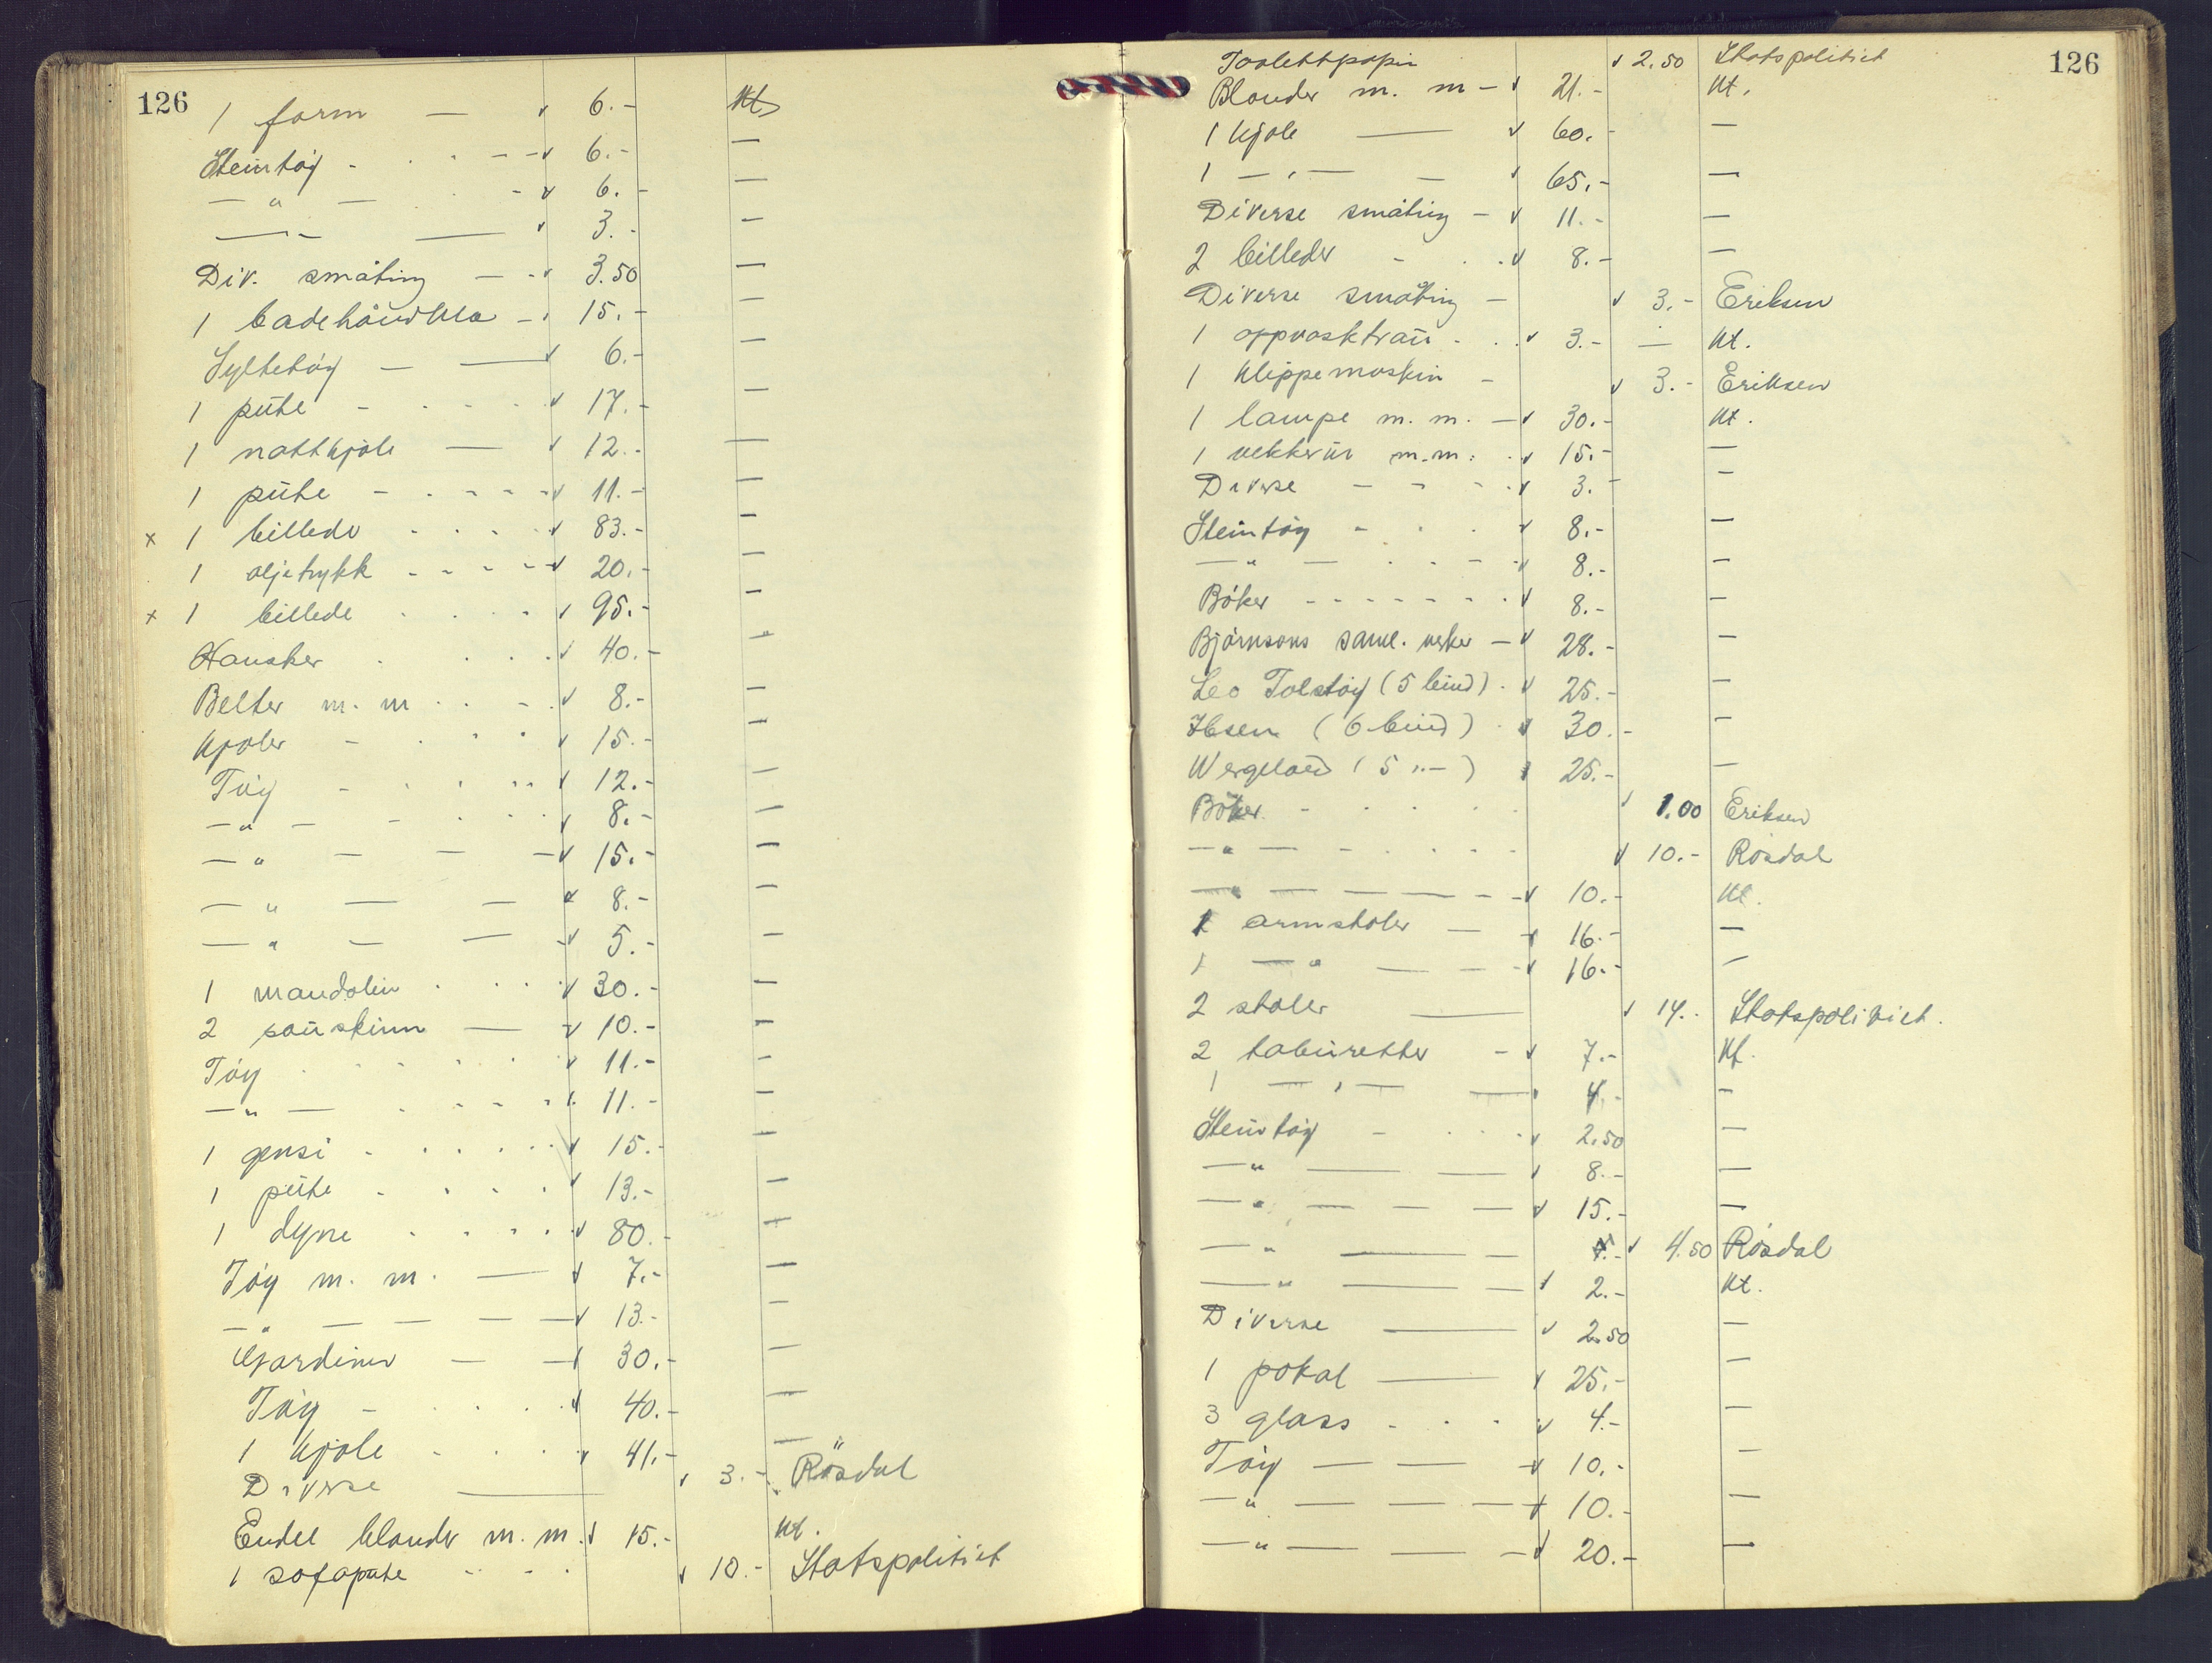 126
1 form — v 6.- Kt.
Steintøy - - - - v 6.- —
— " — - v 6.- —
— " — — v 3.- —
Div. småting — - v 3.50 —
1 badehåndkle - v 15.- —
Syltetøy — — v 6.- —
1 pute - - - - v 17.- —
1 nattkjole — v 12.- —
1 pute - - - - v 11.- —
x 1 billede - - - v 83.- —
1 oljetrykk - - - - v 20.- —
x 1 billede - - - v 95.- —
Hansker - - - v 40.- —
Belter m. m. - - v 8.- —
Kjoler - - - v 15.- —
Tøy - - - - v 12.- —
— " — - - - v 8.- —
— " — — — v 15.- —
— " — — v 8.- —
— " — — v 5.- —
1 mandolin - - - v 30.- —
2 saueskinn — v 10.- —
Tøy - - - - v 11.- —
— " — - - - v 11.- —
1 gensi - - - - v 15.- —
1 pute - - - - v 13.- —
1 dyne - - - - v 80.- —
Tøy m. m. — v 7.- —
— " — — — v 13.- —
Gardiner — — v 30.- —
Tøy - - - - v 40.- —
1 kjole - - - v 41.- —
Diverse — v 3.- Røsdal
Endel blonder m. m. v 15.- Kt.
1 sofapute - - - v 10.- Statspolitiet
126
Toalettpapir v 2.50 Statspolitiet
Blonder m. m — v 21.- Kt.
1 kjole — v 60.- —
1 — " — — v 65.- —
Diverse småting — v 11.- —
2 billeder - - - v 8.- —
Diverse småting — v 3.- Eriksen
1 oppvasktrau - - v 3.- — Kt.
1 klippemaskin - v 3.- Eriksen
1 lampe m. m. — v 30.- Kt.
1 vekkerur m.m. - v 15.- —
Diverse - - - v 3.- —
Steintøy - - - v 8.- —
— " — - - - v 8.- —
Bøker - - - - - - - v 8.- —
Bjørnsons saml. verker — v 28.- —
Leo Tolstoy (5 bind) - v 25.- —
Ibsen (6 bind) - v 30.- —
Wergeland (5 " — ) v 25.- —
Bøker - - - - v 1.00 Eriksen
— " — - - - - v 10.- Røsdal
— " — — — - - v 10.- Kt.
1 armstoler — v 16.- —
1 — " — — - v 16.- —
2 stoler — v 14.- Statspolitiet.
2 taburetter - v 7.- Kt.
1 — " — — v 4.- —
Steintøy - - - v 2.50 —
— " — — v 8.- —
— " — — — v 15.- —
— " — — v 4.50 Røsdal
— " — — v 2.- Kt.
Diverse — v 2.50 —
1 pokal — v 25.- —
3 glass - - - v 4.- —
Tøy — — v 10.- —
— " — — — v 10.- —
— " — — — v 20.- —